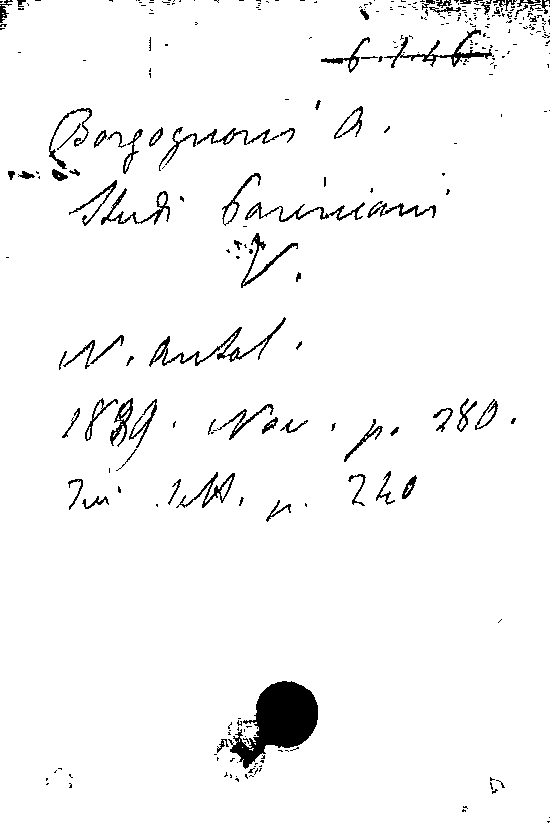 6.1.46
Borgognoni A.
Studi Pariniani
V.
N. Antol.
1889. Nov. p. 280.
Ivi. Sett. p. 240